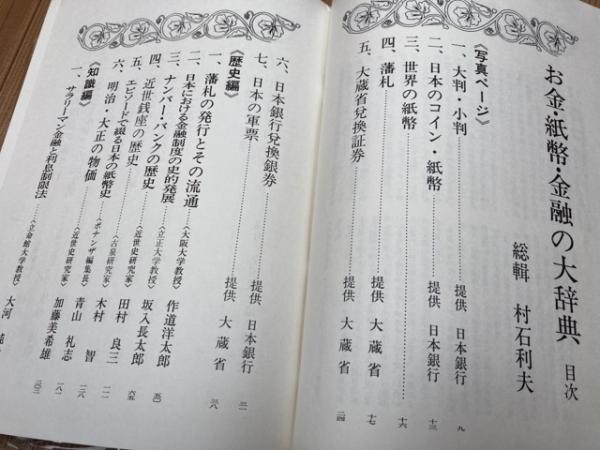 お金・紙幣・金融の大辞典 目次
総輯 村石利夫
《写真ページ》
一、大判・小判……提供 日本銀行 九
二、日本のコイン・紙幣……提供 日本銀行 一三
三、世界の紙幣……一六
四、藩札……提供 大蔵省 一七
五、大蔵省兌換証券……提供 大蔵省 二四
六、日本銀行兌換銀券……提供 日本銀行
七、日本の軍票……提供 大蔵省
《歴史編》
一、藩札の発行とその流通……〈大阪大学教授〉 作道洋太郎 三八
二、日本における金融制度の史的発展……〈立正大学教授〉 坂入長太郎 五〇
三、ナンバー・バンクの歴史……〈近世史研究家〉 田村良三 六五
四、近世銭座の歴史……〈古泉研究家〉
五、エピソードで綴る日本の紙幣史……〈ボナンザ編集長〉 木村 智
六、明治・大正の物価……〈近世史研究家〉 青山礼志
加藤美希雄 一八一
《知識編》
一、サラリーマン金融と利息制限法……〈立命館大学教授〉 大河